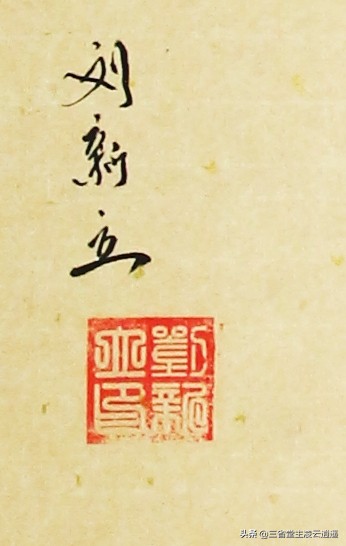 刘
新
立
劉新
立印
头条 @三省堂主凌云逍遥